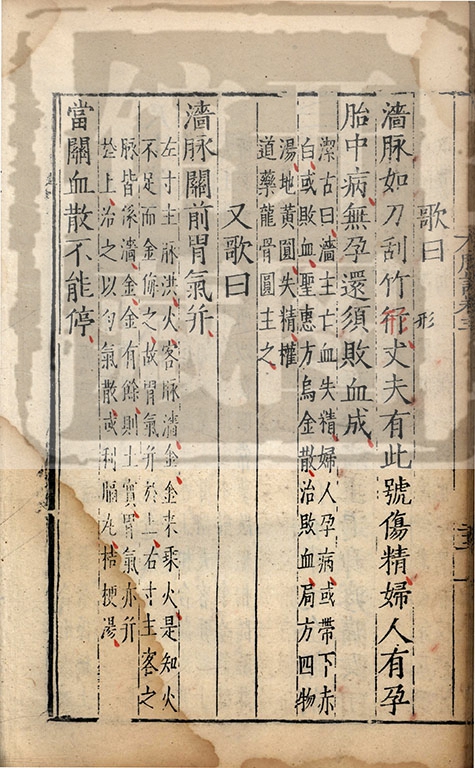 歌曰
濇脉如刀刮竹形丈夫有此號傷精婦人有孕
胎中病無孕還須敗血成
潔古曰濇主亡血失精婦人孕病或帶下赤
白或敗血聖惠方烏金散治敗血局方四物
湯地黃圓失精權
道藥龍骨圓主之
又歌曰
濇脉關前胃氣并
左寸主脉洪火客脉濇金金来乘火是知火
不足而金侮之故胃氣并於上右寸主客之
脉皆係濇金金有餘則土實胃氣亦并
於上治之以勻氣散或利膈丸桔梗湯
當關血散不能停